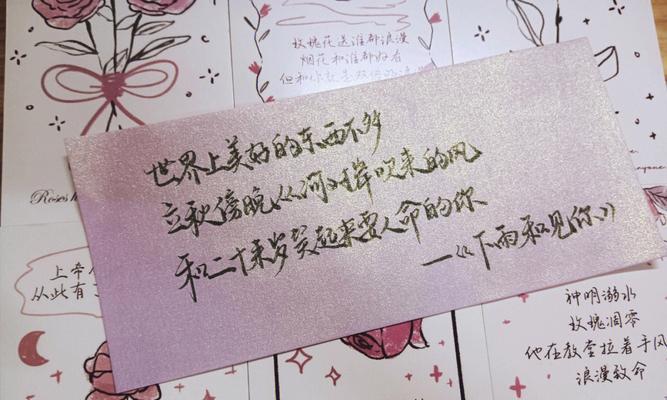 玫瑰花送谁都浪漫
烟花和谁都好看
但和你就是双倍的浪漫
世界上美好的东西不多
立秋傍晚从河对岸吹来的风
和二十来岁笑起来要人命的你
——《下雨和见你》
Roses
上帝
从此有
神明溺水
玫瑰凋零
他在教堂拉着手风
浪漫致命